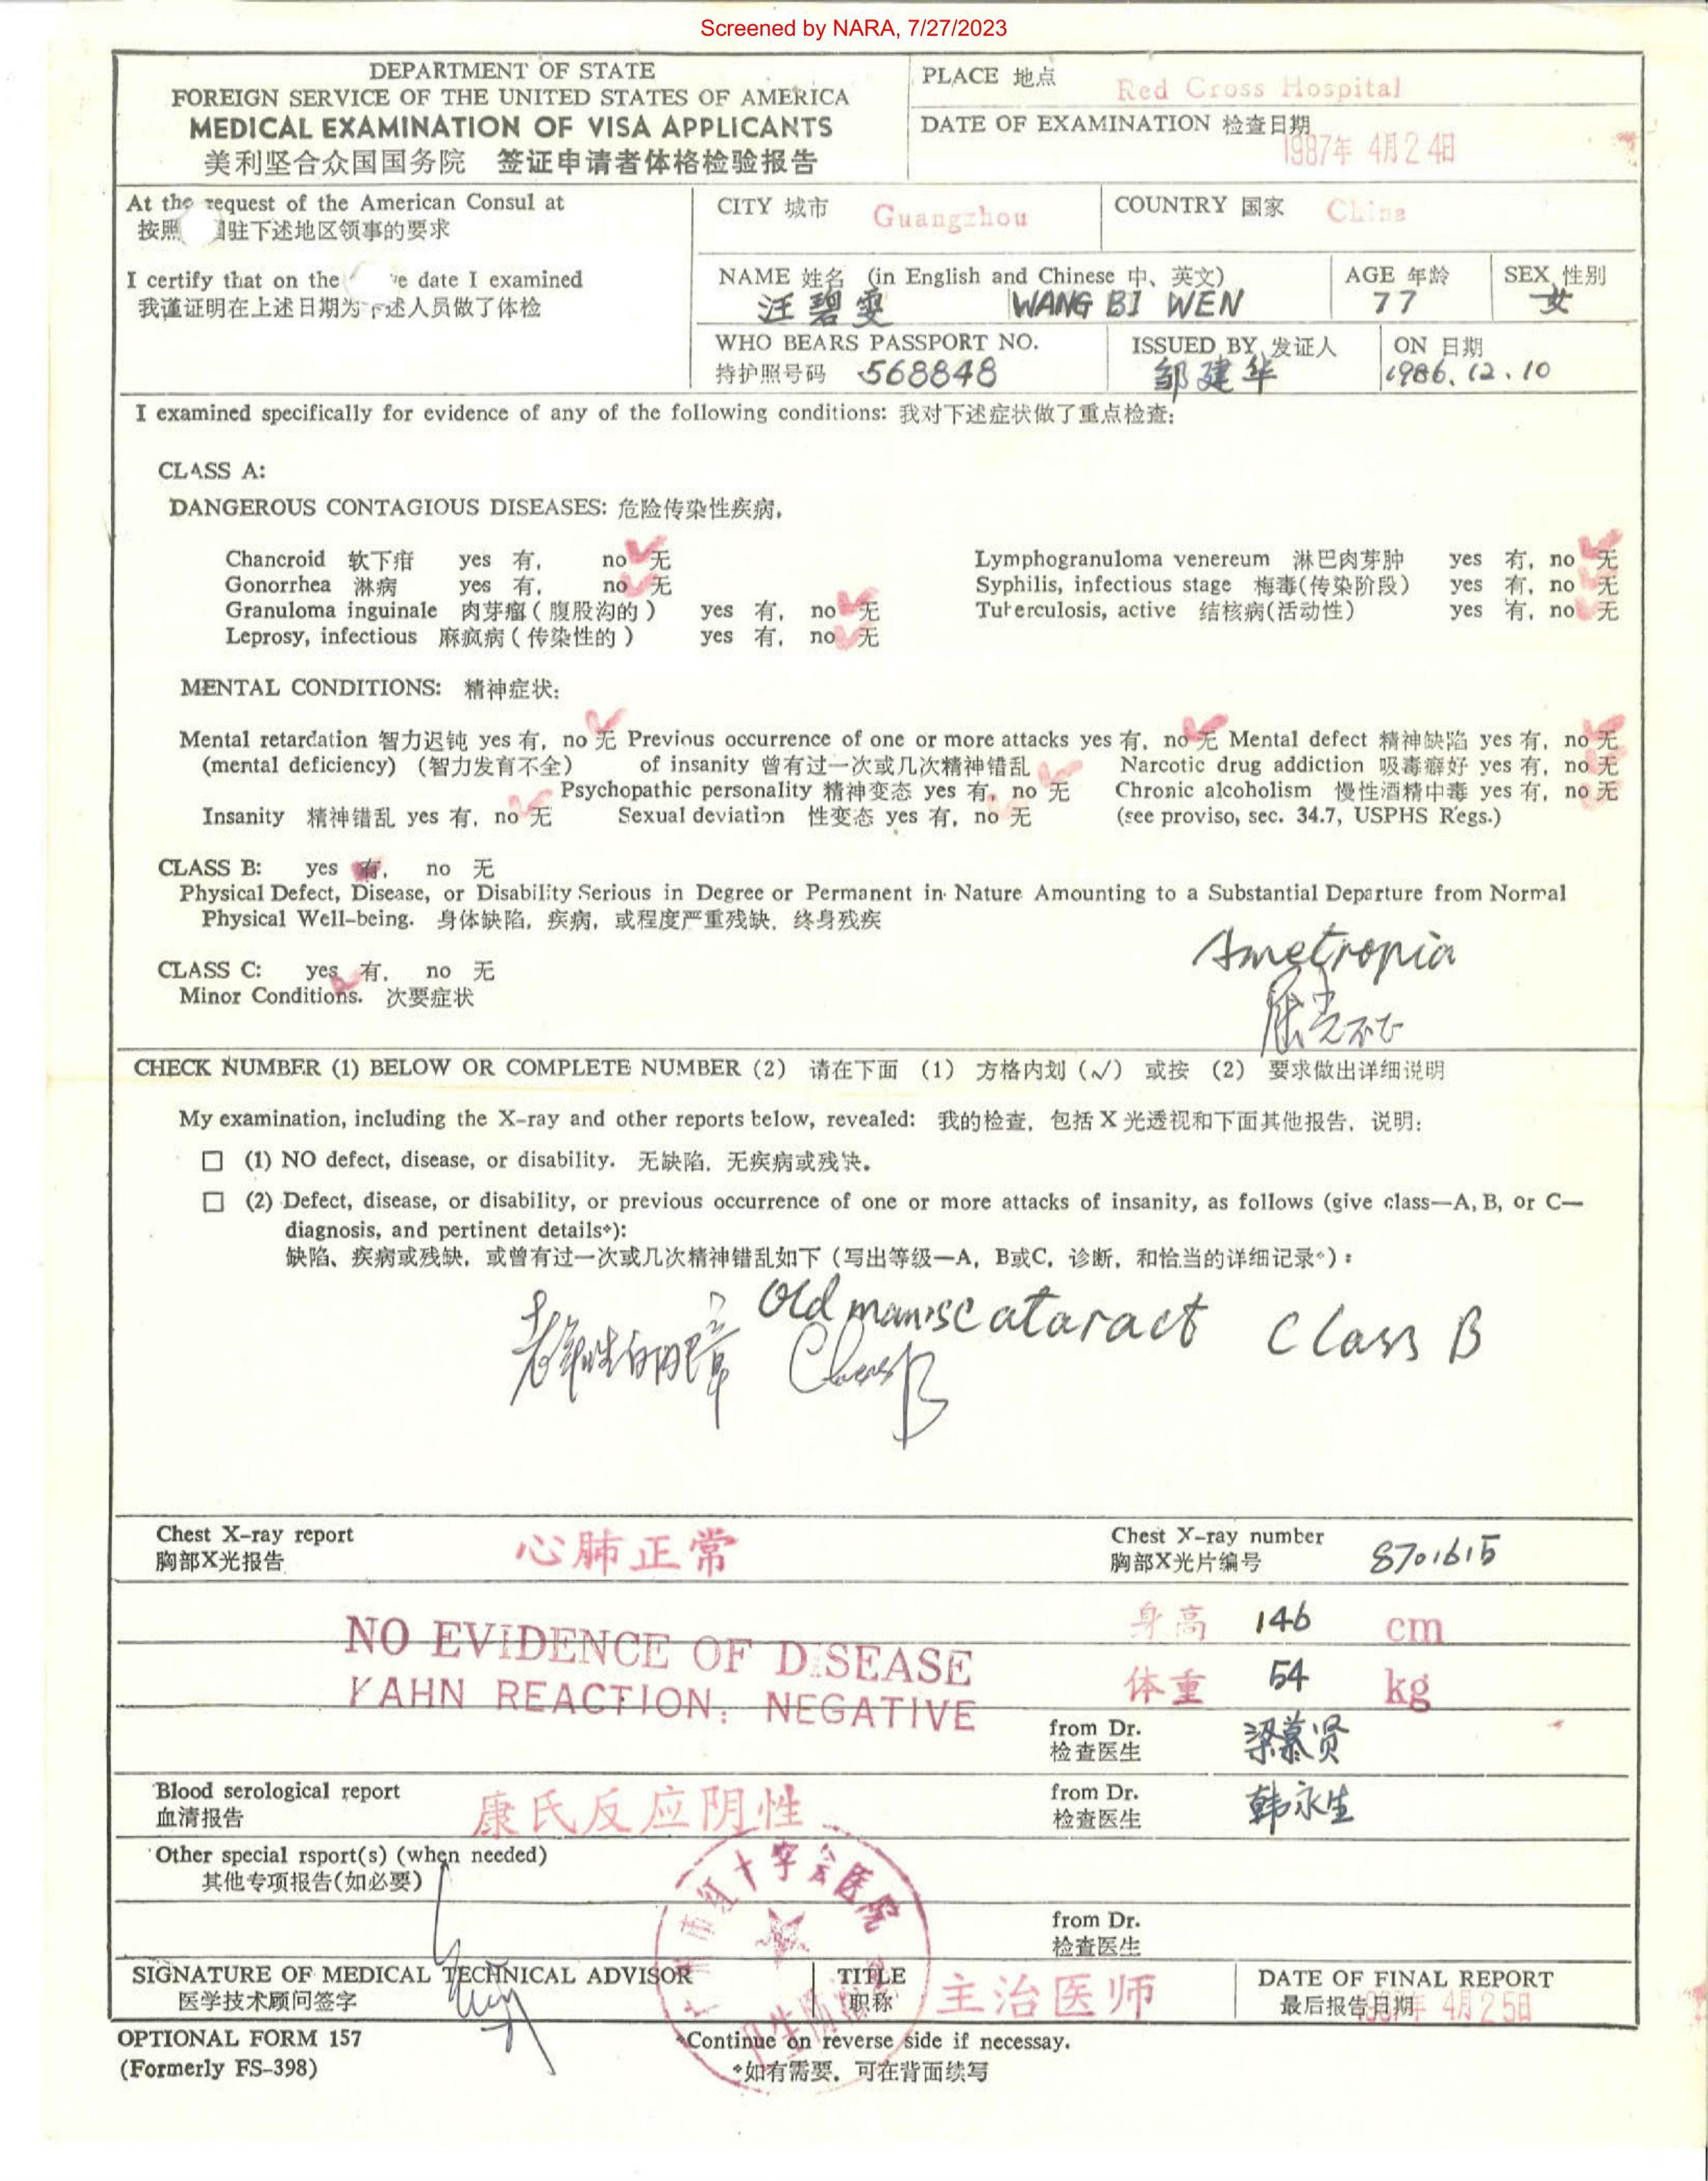 Screened by NARA, 7/27/2023
DEPARTMENT OF STATE
FOREIGN SERVICE OF THE UNITED STATES OF AMERICA
MEDICAL EXAMINATION OF VISA APPLICANTS
美利坚合众国国务院 签证申请者体格检验报告
PLACE 地点 Red Cross Hospital
DATE OF EXAMINATION 检查日期
1987年 4月24日
At the request of the American Consul at
按照 国驻下述地区领事的要求
CITY 城市 Guangzhou
COUNTRY 国家 China
I certify that on the ve date I examined
我谨证明在上述日期为下述人员做了体检
NAME 姓名 (in English and Chinese 中、英文)
汪碧雯 WANG BI WEN
AGE 年龄
77
SEX 性别
女
WHO BEARS PASSPORT NO.
持护照号码 568848
ISSUED BY 发证人
邹建华
ON 日期
1986.12.10
I examined specifically for evidence of any of the following conditions: 我对下述症状做了重点检查:
CLASS A:
DANGEROUS CONTAGIOUS DISEASES: 危险传染性疾病.
Chancroid 软下疳 yes 有, no 无
Gonorrhea 淋病 yes 有, no 无
Granuloma inguinale 肉芽瘤(腹股沟的) yes 有, no 无
Leprosy, infectious 麻疯病(传染性的) yes 有, no 无
Lymphogranuloma venereum 淋巴肉芽肿 yes 有, no 无
Syphilis, infectious stage 梅毒(传染阶段) yes 有, no 无
Tuberculosis, active 结核病(活动性) yes 有, no 无
MENTAL CONDITIONS: 精神症状:
Mental retardation 智力迟钝 yes 有, no 无 Previous occurrence of one or more attacks yes 有, no 无 Mental defect 精神缺陷 yes 有, no 无
(mental deficiency) (智力发育不全) of insanity 曾有过一次或几次精神错乱 Narcotic drug addiction 吸毒癖好 yes 有, no 无
Psychopathic personality 精神变态 yes 有, no 无 Chronic alcoholism 慢性酒精中毒 yes 有, no 无
Insanity 精神错乱 yes 有, no 无 Sexual deviation 性变态 yes 有, no 无 (see proviso, sec. 34.7, USPHS Regs.)
CLASS B: yes 有, no 无
Physical Defect, Disease, or Disability Serious in Degree or Permanent in Nature Amounting to a Substantial Departure from Normal
Physical Well-being. 身体缺陷, 疾病, 或程度严重残缺, 终身残疾
Ametropia
屈光不正
CLASS C: yes 有, no 无
Minor Conditions. 次要症状
CHECK NUMBER (1) BELOW OR COMPLETE NUMBER (2) 请在下面 (1) 方格内划 (√) 或按 (2) 要求做出详细说明
My examination, including the X-ray and other reports below, revealed: 我的检查, 包括X光透视和下面其他报告, 说明:
☐ (1) NO defect, disease, or disability. 无缺陷, 无疾病或残缺。
☐ (2) Defect, disease, or disability, or previous occurrence of one or more attacks of insanity, as follows (give class—A, B, or C—
diagnosis, and pertinent details*):
缺陷、疾病或残缺, 或曾有过一次或几次精神错乱如下 (写出等级—A, B或C, 诊断, 和恰当的详细记录*):
Old man's cataract Class B
老年性白内障 Class B
Chest X-ray report
胸部X光报告
心肺正常
Chest X-ray number
胸部X光片编号
8701615
NO EVIDENCE OF DISEASE
KAHN REACTION: NEGATIVE
身高 146 cm
体重 54 kg
from Dr.
检查医生
梁慕贤
Blood serological report
血清报告
康氏反应阴性
from Dr.
检查医生
韩永生
Other special rsport(s) (when needed)
其他专项报告(如必要)
市红十字会医院
from Dr.
检查医生
SIGNATURE OF MEDICAL TECHNICAL ADVISOR
医学技术顾问签字
TITLE
职称
主治医师
DATE OF FINAL REPORT
最后报告日期
1987年 4月25日
OPTIONAL FORM 157
(Formerly FS-398)
*Continue on reverse side if necessay.
*如有需要, 可在背面续写